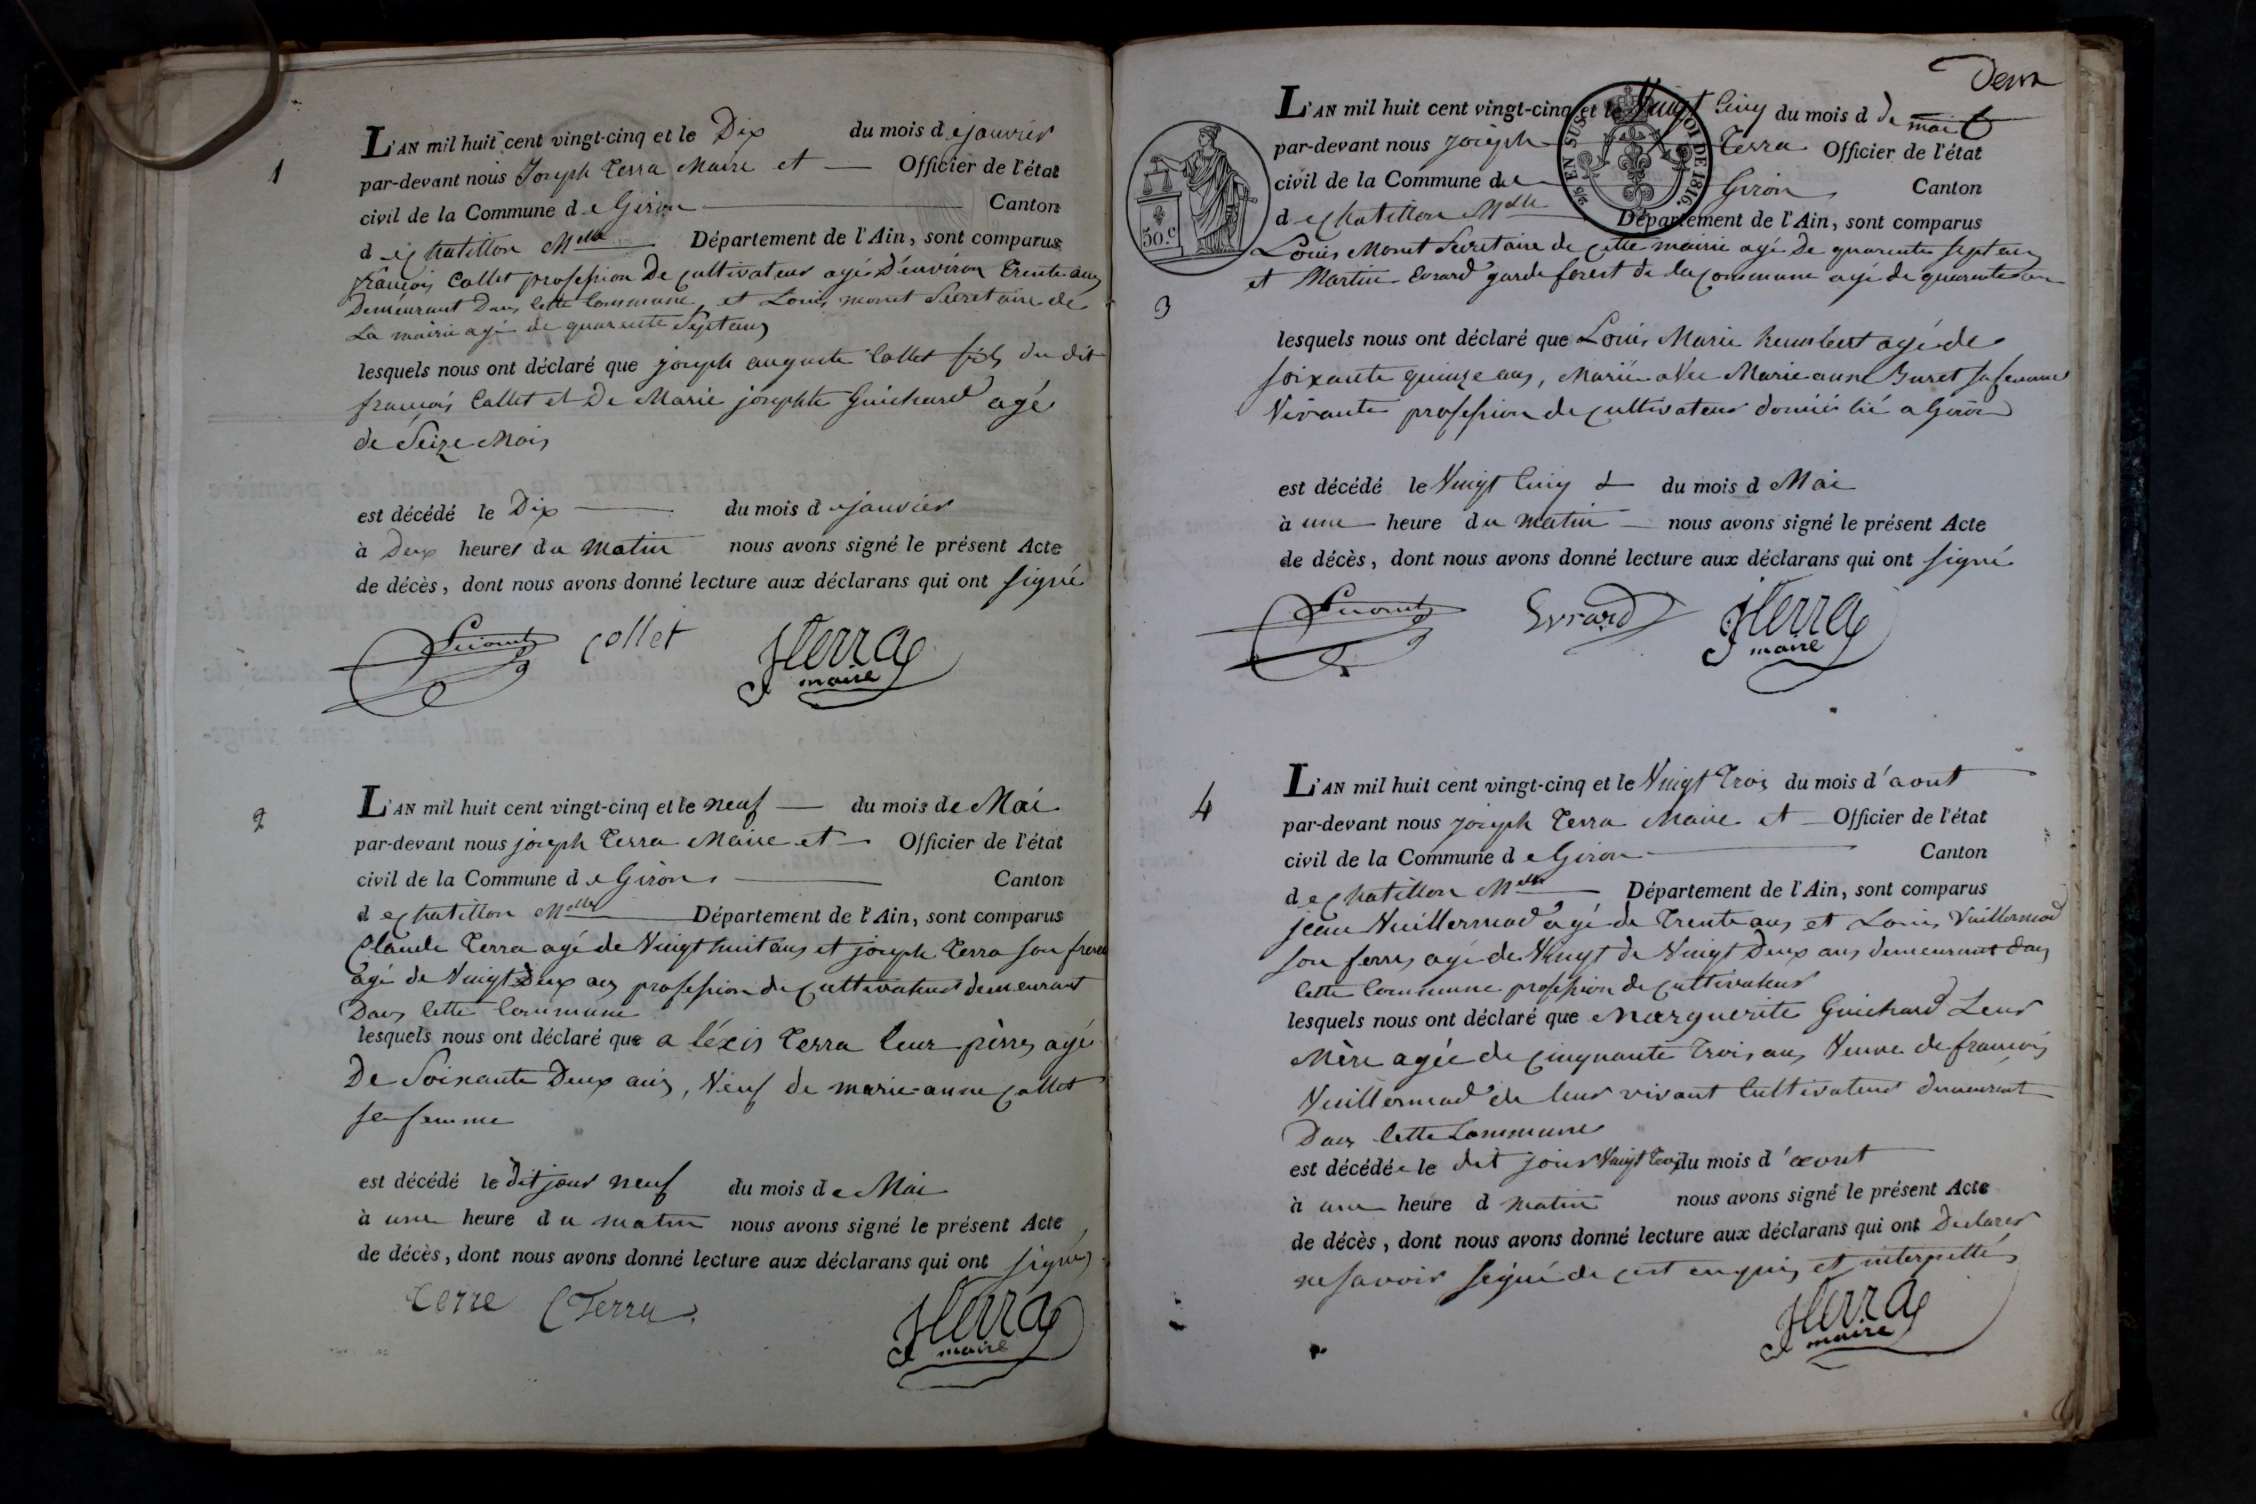 1
L'AN mil huit cent vingt-cinq et le Dix du mois de janvier
par-devant nous Joseph Terra Maire et — Officier de l'état
civil de la Commune de Giron — Canton
de chatillon Mlle — Département de l'Ain, sont comparus
françois Collet profession De cultivateur agé D'environ trente ans
Demeurant Dans Cette Commune, et Louis monet Secretaire de
La mairie agé de quarente Sept ans
lesquels nous ont déclaré que joseph auguste Collet fils du dit
françois Collet et De Marie josephte Guichard agé
de Seize Mois
est décédé le Dix — du mois de janvier
à Deux heures du Matin nous avons signé le présent Acte
de décès, dont nous avons donné lecture aux déclarans qui ont signé
collet JTerra
maire
2
L'AN mil huit cent vingt-cinq et le neuf — du mois de Mai
par-devant nous joseph Terra Maire et — Officier de l'état
civil de la Commune de Giron — Canton
de chatillon Mlle — Département de l'Ain, sont comparus
Claude Terra agé de Vingt huit ans et joseph Terra son frere
agé de Vingt Deux ans profession de Cultivateur demeurant
Dans Cette Commune
lesquels nous ont déclaré que aléxis Terra leur pèrre agé
De Soixante Deux ans, Veuf de marie-anne Collet
sa femme
est décédé le dit jour neuf du mois de Mai
à une heure du matin nous avons signé le présent Acte
de décès, dont nous avons donné lecture aux déclarans qui ont signés
Terre CTerra
JTerra
maire
Deux
L'AN mil huit cent vingt-cinq et le Vingt Cinq du mois d de mai
par-devant nous joseph — Terra Officier de l'état
civil de la Commune de — Giron Canton
de chatillon Mlle Département de l'Ain, sont comparus
50.c
EN SUS
LOI DE 1816.
3
Louis Monet Secretaire de Cette mairie agé De quarente sept ans
et Martin Evrard garde forest de la Commune agé de quarente ans
lesquels nous ont déclaré que Louis Marie humbert agé de
soixante quinze ans, Marié avec Marie anne Buret sa femme
Vivante profession de Cultivateur domicilié a Giron
est décédé le Vingt Cinq — du mois d Mai
à une heure du matin — nous avons signé le présent Acte
de décès, dont nous avons donné lecture aux déclarans qui ont signé
Evrard JTerra
maire
4
L'AN mil huit cent vingt-cinq et le Vingt Trois du mois d'aout
par-devant nous joseph Terra Maire et — Officier de l'état
civil de la Commune de Giron — Canton
de chatillon Mlle — Département de l'Ain, sont comparus
jean Vuillermod agé de Trente ans et Louis Vuillermod
son ferre agé de Vingt de Vingt Deux ans demeurant dans
Cette Commune profession de cultivateur
lesquels nous ont déclaré que Marguerite Guichard Leur
Mère agée de Cinquante Trois ans Veuve de françois
Vuillermod de leur vivant Cultivateur demeurant
Dans Cette Commune
est décédée le dit jour Vingt trois du mois d'aout
à une heure d matin nous avons signé le présent Acte
de décès, dont nous avons donné lecture aux déclarans qui ont Declarer
ne savoir signé de cet enquis et interpellés
JTerra
maire